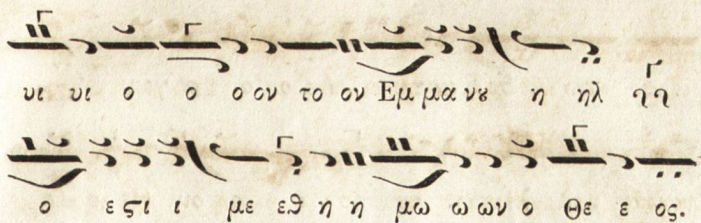 υι υι ο ο ο ον το ον Εμ μα νȣ η ηλ
ο ε ϛι ι με εθ η η μω ω ων ο Θε ε ος.